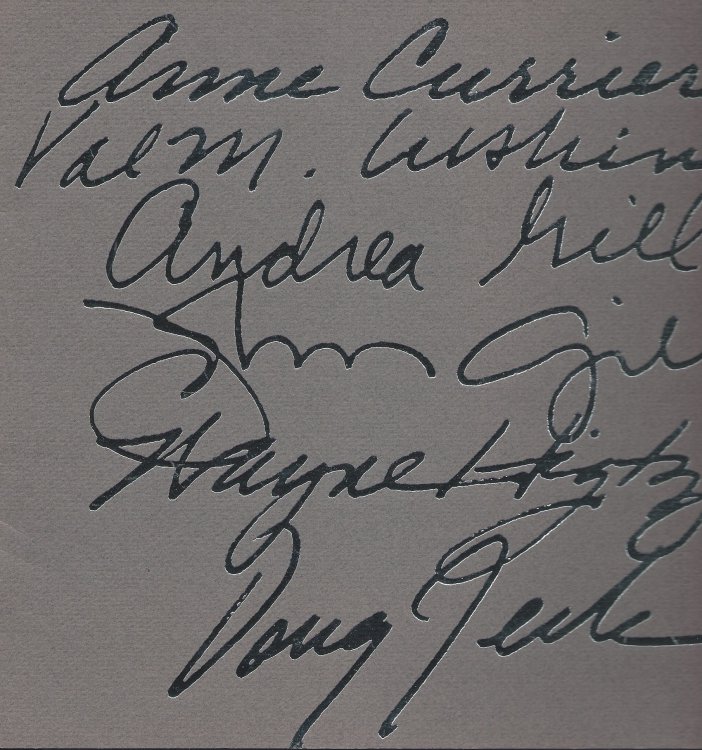 Anne Currier
Val M. Cushin
Andrea Gill
John Gil
Wayne Higby
Doug Jeck